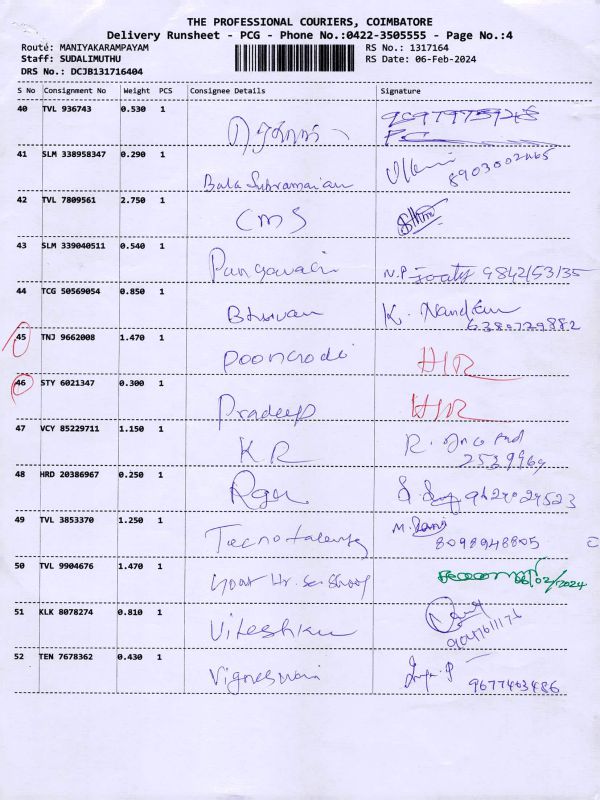 THE PROFESSIONAL COURIERS, COIMBATORE
Delivery Runsheet - PCG - Phone No.:0422-3505555 - Page No.:4
Route: MANIYAKARAMPAYAM RS No.: 1317164
Staff: SUDALIMUTHU RS Date: 06-Feb-2024
DRS No.: DCJB131716404
S No Consignment No Weight PCS Consignee Details Signature
40 TVL 936743 0.530 1
P.C
41 SLM 338958347 0.290 1
Bala Subramanian
42 TVL 7809561 2.750 1
CMS
43 SLM 339040511 0.540 1
N.P 9842153135
44 TCG 50569054 0.850 1
Bhuvan K. Nandku
6380729882
45 TNJ 9662008 1.470 1
Poonchodi H/R
46 STY 6021347 0.300 1
Pradeep H/R
47 VCY 85229711 1.150 1
KR R.
2539969
48 HRD 20386967 0.250 1
49 TVL 3853370 1.250 1
Tecnotalents M.
8098948805
50 TVL 9904676 1.470 1
02/2024
51 KLK 8078274 0.810 1
Viteshku
52 TEN 7678362 0.430 1
Vigneswari 9677463486